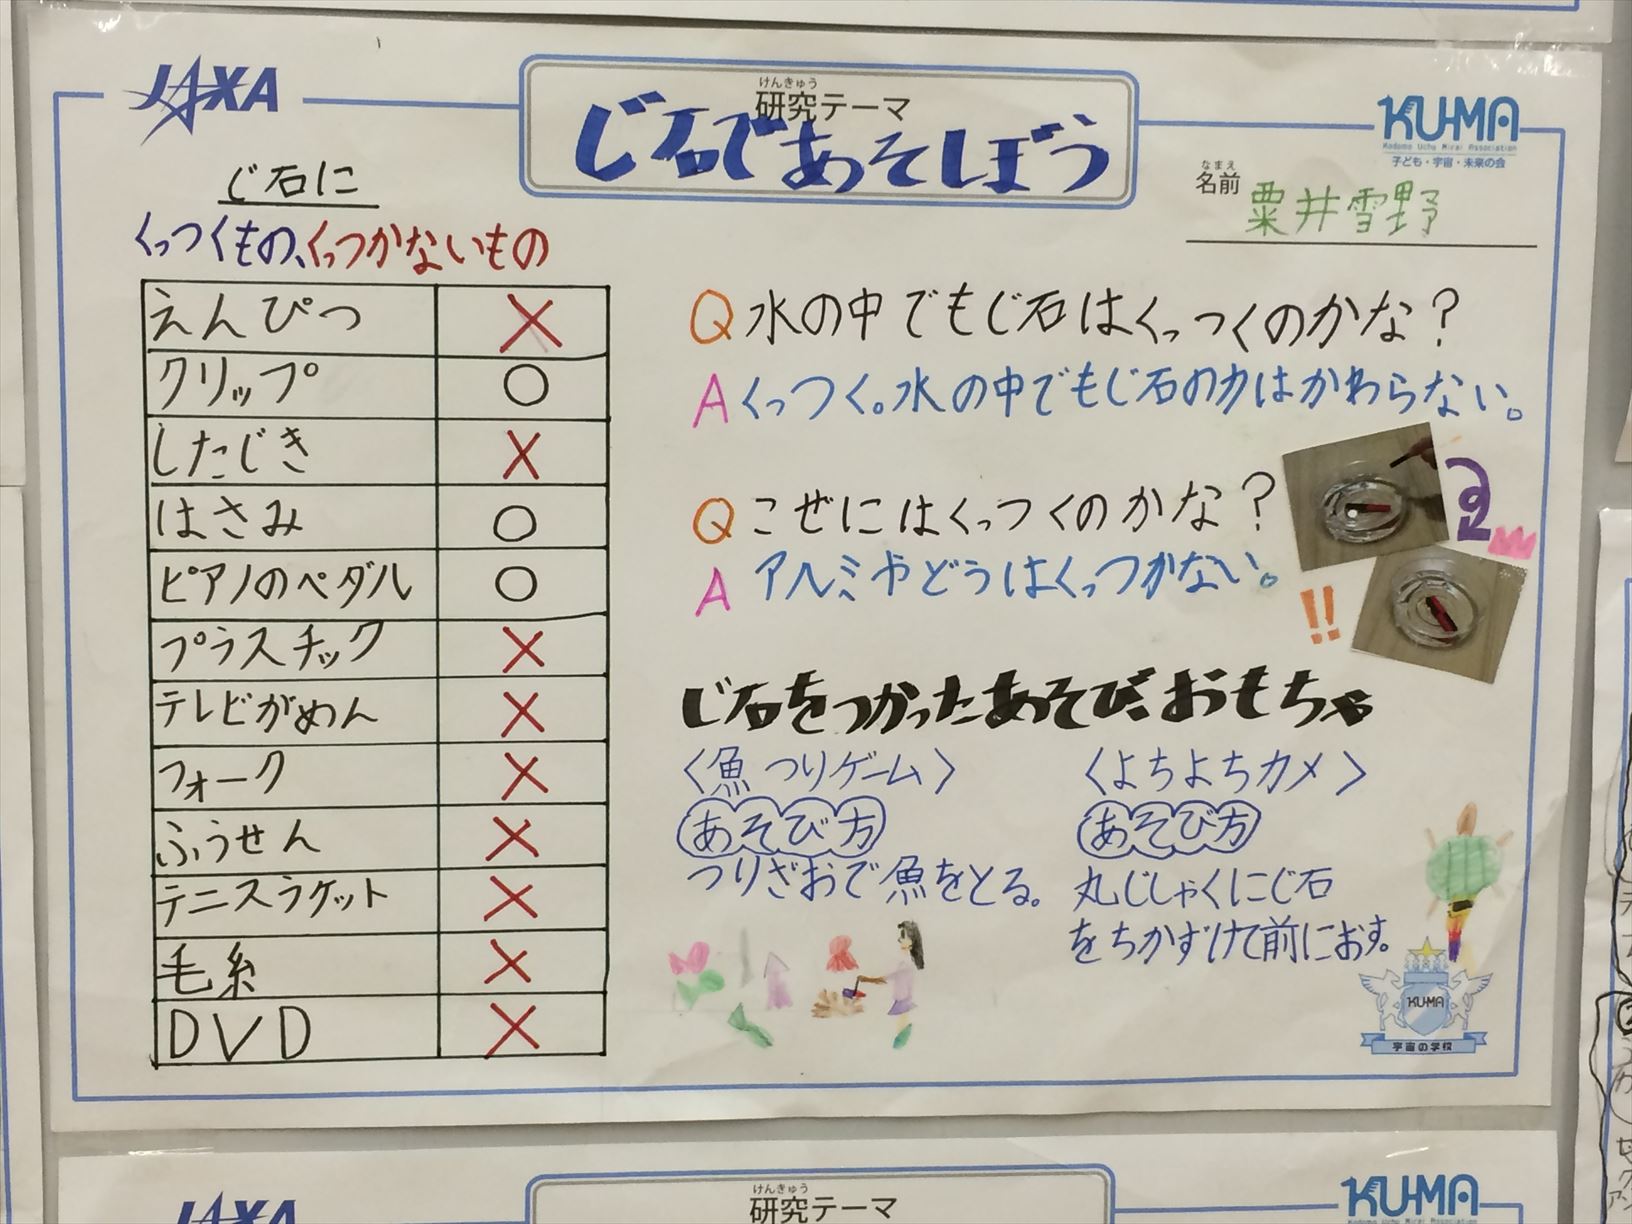 JAXA
けんきゅう
研究テーマ
じ石であそぼう
KU-MA
Kodomo Uchu Mirai Association
子ども・宇宙・未来の会
なまえ
名前
粟井雪野
じ石に
くっつくもの、くっつかないもの
えんぴつ ×
クリップ ○
したじき ×
はさみ ○
ピアノのペダル ○
プラスチック ×
テレビがめん ×
フォーク ×
ふうせん ×
テニスラケット ×
毛糸 ×
DVD ×
Q 水の中でもじ石はくっつくのかな?
A くっつく。水の中でもじ石の力はかわらない。
Q こぜにはくっつくのかな?
A アルミやどうはくっつかない。
!!
じ石をつかったあそび、おもちゃ
〈魚つりゲーム〉
あそび方
つりざおで魚をとる。
〈よちよちカメ〉
あそび方
丸じしゃくにじ石
をちかずけて前におす。
KU-MA
宇宙の学校
JAXA
けんきゅう
研究テーマ
KU-MA
Kodomo Uchu Mirai Association